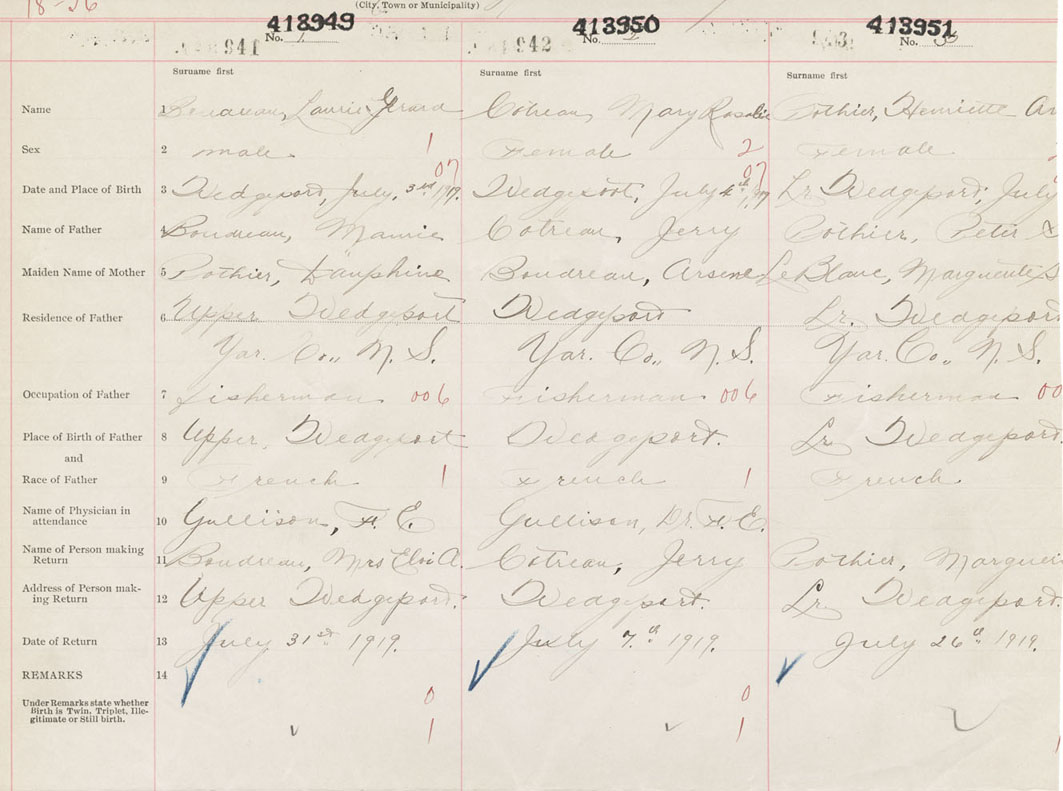 18-26 (City, Town or Municipality)
418949 413950 413951
941 No. 1 942 No. 2 943 No. 3
Surname first Surname first Surname first
Name 1 Boudreau, Laurie Gerard Cotreau, Mary Rosalie Pothier, Henriette
Sex 2 male 1 Female 2 Female
07 07
Date and Place of Birth 3 Wedgeport, July, 3rd 1919. Wedgeport, July 4th, 1919 Lr Wedgeport, July
Name of Father 4 Boudreau, Mannie Cotreau, Jerry Pothier, Peter
Maiden Name of Mother 5 Pothier, Dauphine Boudreau, Arsene LeBlanc, Marguerite
Residence of Father 6 Upper Wedgeport Wedgeport Lr. Wedgeport
Yar. Co., N. S. Yar. Co., N. S. Yar. Co., N. S.
Occupation of Father 7 fisherman 006 Fisherman 006 Fisherman 00
Place of Birth of Father 8 Upper, Wedgeport Wedgeport. Lr Wedgeport.
and
Race of Father 9 French 1 French 1 French
Name of Physician in
attendance 10 Gullison, F. E. Gullison, Dr. F. E.
Name of Person making
Return 11 Boudreau, Mrs Eloi A. Cotreau, Jerry Pothier, Marguer
Address of Person mak-
ing Return 12 Upper Wedgeport. Wedgeport. Lr Wedgeport.
Date of Return 13 July 31st 1919. July 7th 1919. July 26th 1919.
REMARKS 14
Under Remarks state whether
Birth is Twin, Triplet, Ille-
gitimate or Still birth.
0 0
1 1